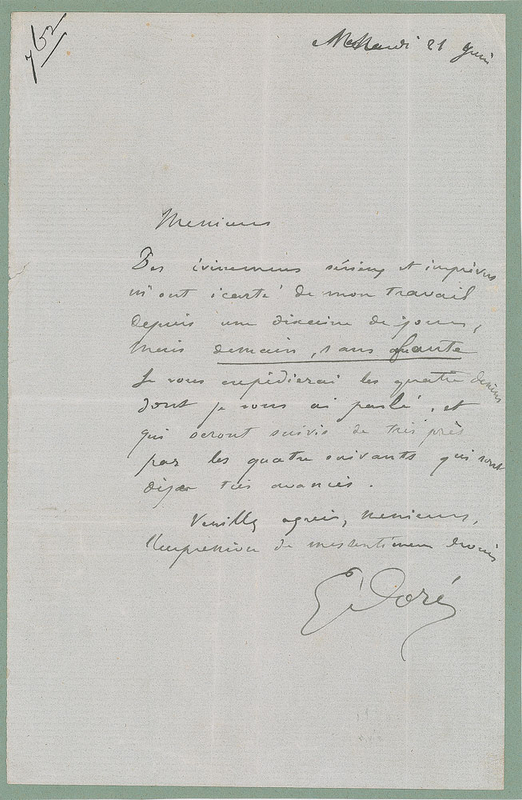 762
21 Juin
Messieurs
Des évènemens sérieux et imprévus
m'ont écarté de mon travail
depuis une dixaine de jours,
mais demain, sans faute
Je vous expédierai les quatre dessins
dont je vous ai parlé, et
qui seront suivis de très près
par les quatre suivants qui sont
déja très avancés.
Veuillez agréer, Messieurs,
l'expression de mes sentimens
G Doré